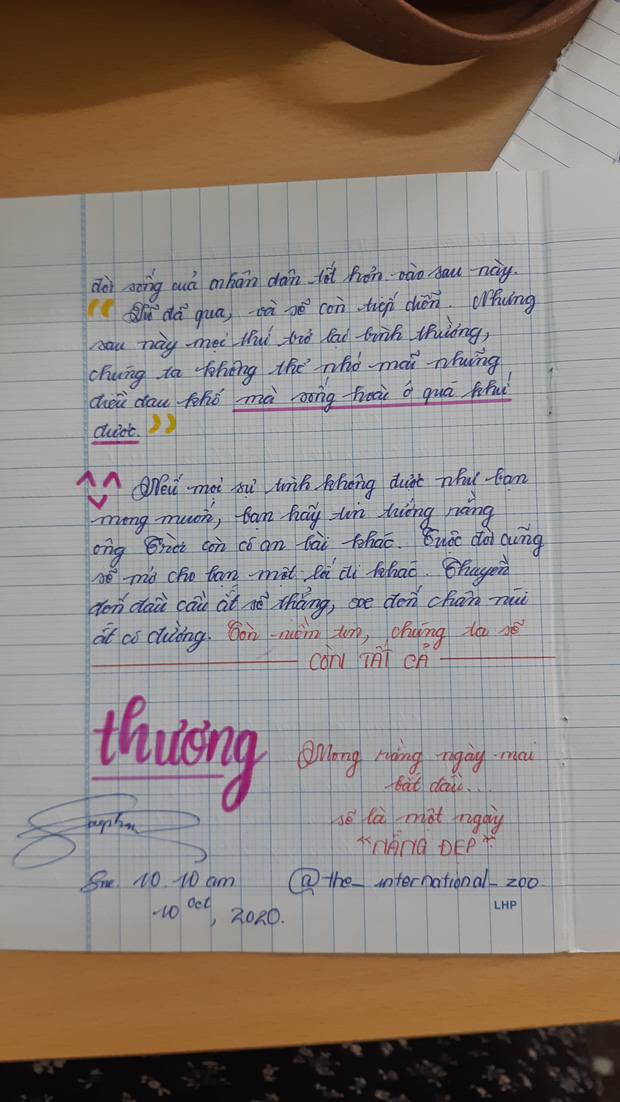 đời sống của nhân dân tốt hơn vào sau này.
“ Dù đã qua, và sẽ còn tiếp diễn. Nhưng
sau này mọi thứ trở lại bình thường,
chúng ta không thể nhớ mãi những
điều đau khổ mà sống hoài ở quá khứ
được. ”
Nếu mọi sự tình không được như bạn
mong muốn, bạn hãy tin tưởng rằng
ông Trời còn có an bài khác. Cuộc đời cũng
sẽ mở cho bạn một lối đi khác. Thuyền
đến đầu cầu ắt sẽ thẳng, xe đến chân núi
ắt có đường. Còn niềm tin, chúng ta sẽ
CÒN TẤT CẢ
thương
Mong rằng ngày mai
bắt đầu...
sẽ là một ngày
“NẮNG ĐẸP”
10.10 am
@the_international_zoo
10 Oct, 2020.
LHP